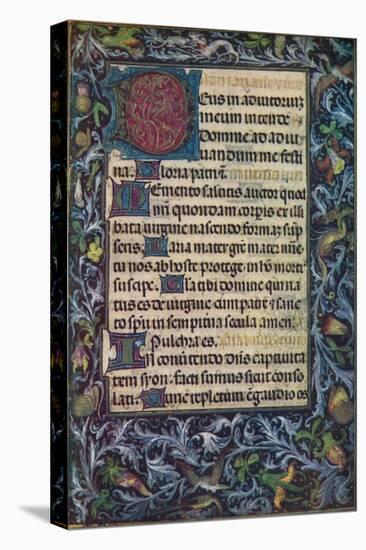 Deus in adiutorium
meum intende
Domine ad adiu
vandum me festi
na Gloria patri
Memento salutis auctor quod
nr̄i quondam corporis ex illi
bata virgine nascendo formā sūp
seris Maria mater grē mater mīe
tu nos ab hoste protege in hora morti
suscipe Gloria tibi domine qui na
tus es de virgine cum patre et sanc
to spū in sempitna secula amen
Pulchra es
In cōvertendo dn̄s captivita
tem syon facti sumus sicut conso
lati Tunc repletum ē gaudio os